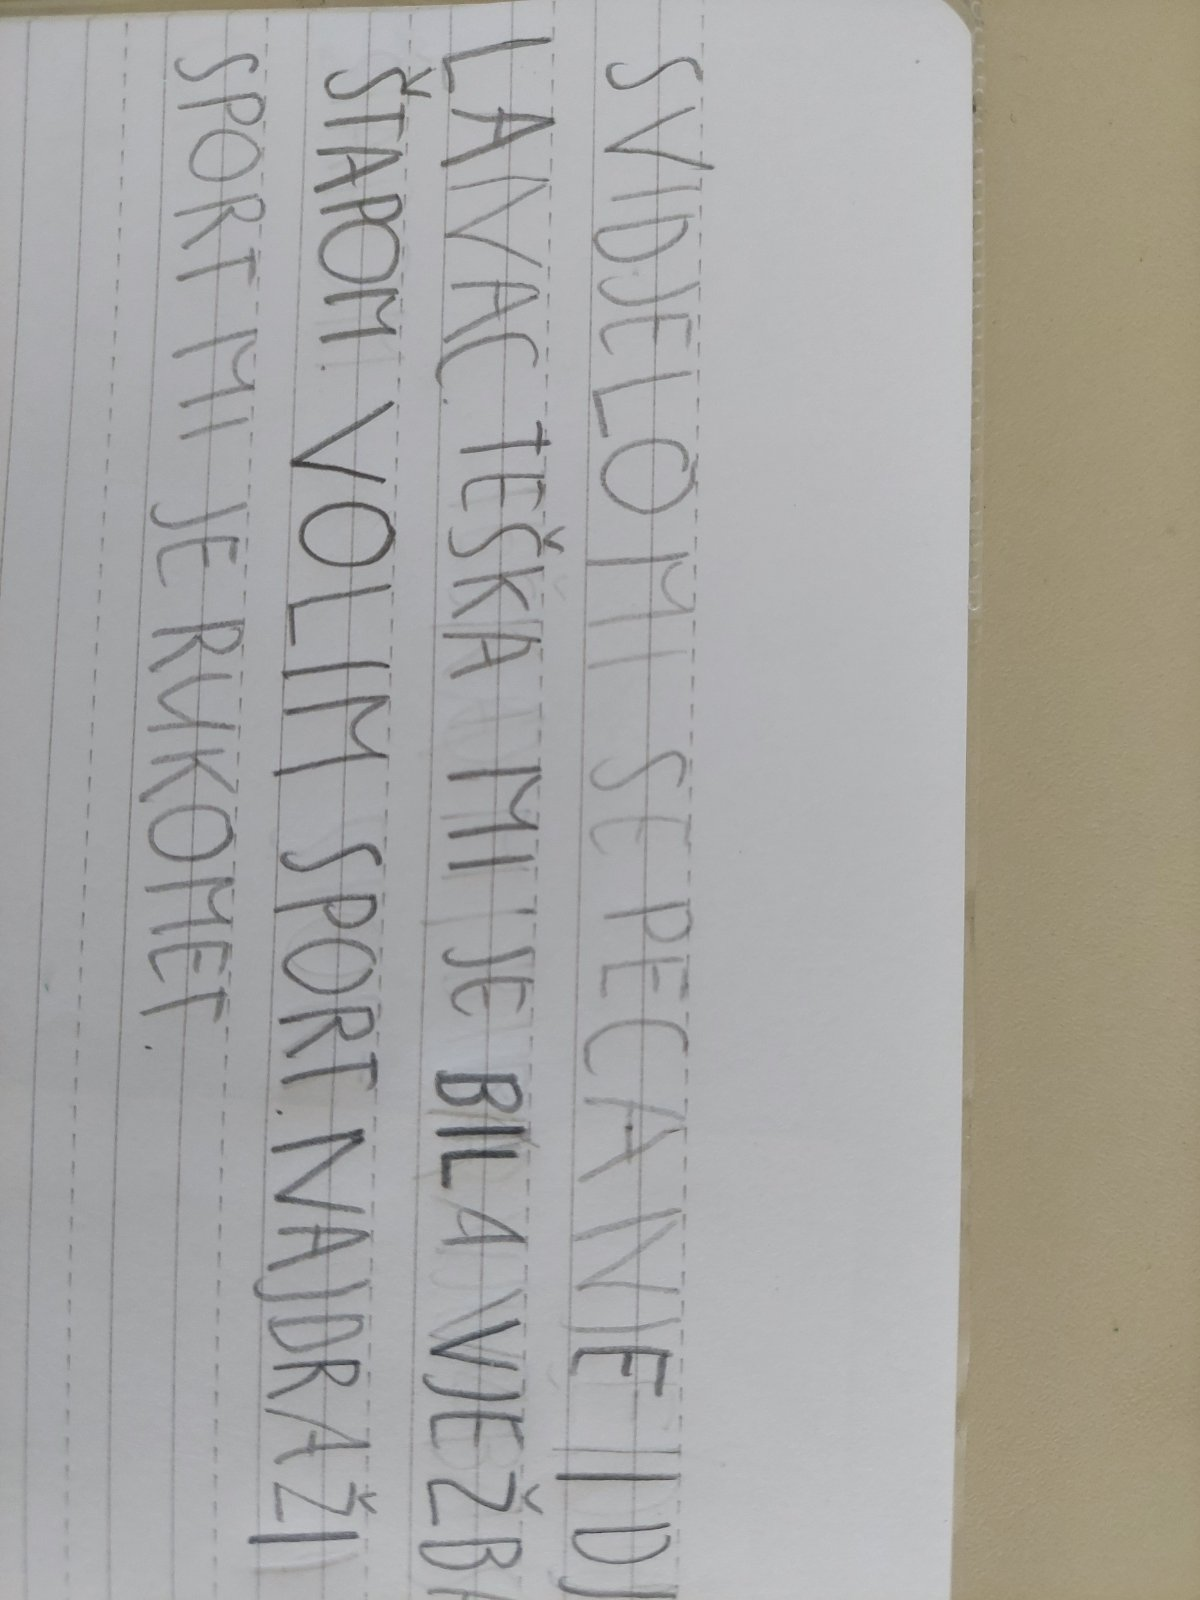 SVIDJELO MI SE PECANJE I DJ
LANAC. TEŠKA MI JE BILA VJEŽBA
ŠTAPOM. VOLIM SPORT. NAJDRAŽI
SPORT MI JE RUKOMET.